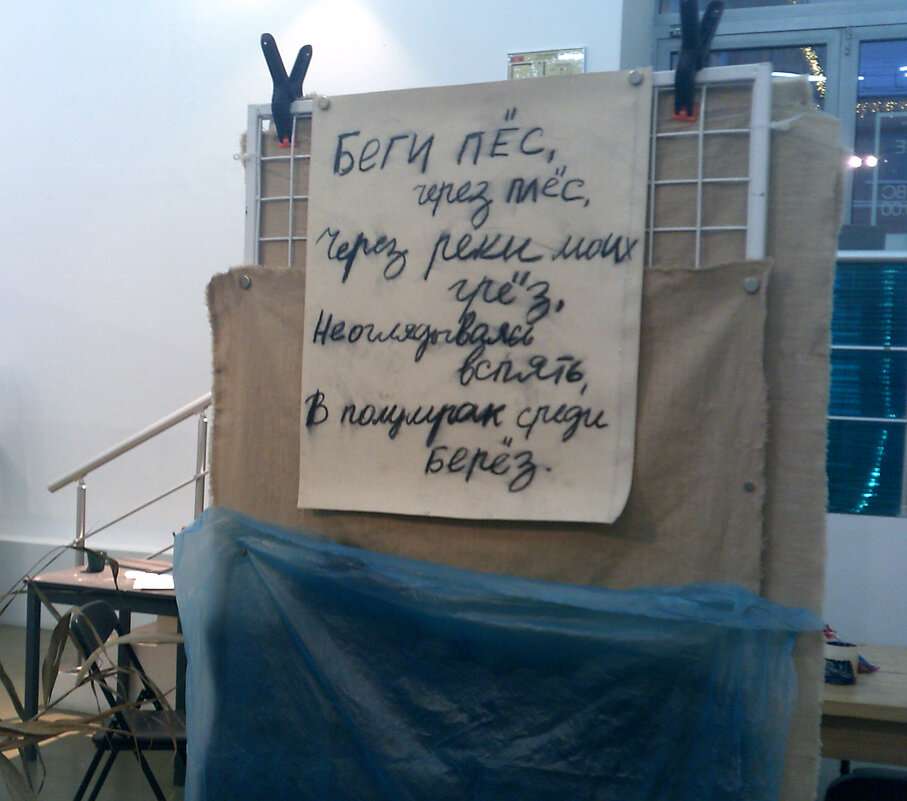 Беги пёс,
через плёс,
Через реки моих
грёз,
Не оглядывайся
вспять,
В полумрак среди
Берёз.